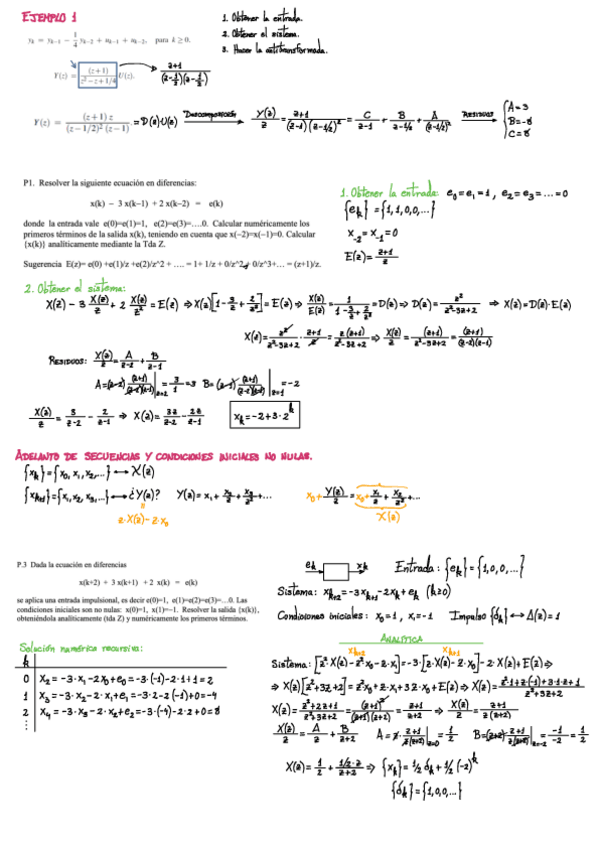 EJEMPLO 1
y_k = y_{k-1} - 1/4 y_{k-2} + u_{k-1} + u_{k-2}, para k ≥ 0.
Y(z) = (z+1)/(z²-z+1/4) U(z). → (z+1)/((z-1/2)(z-1/2))
1. Obtener la entrada.
2. Obtener el sistema.
3. Hacer la antitransformada.
Y(z) = (z+1) z/((z-1/2)²(z-1)) = D(z)·U(z) Descomposición → Y(z)/z = (z+1)/((z-1)(z-1/2)²) = C/(z-1) + B/(z-1/2) + A/(z-1/2)² Residuos → { A=3 B=-8 C=8
P1. Resolver la siguiente ecuación en diferencias:
x(k) – 3 x(k–1) + 2 x(k–2) = e(k)
donde la entrada vale e(0)=e(1)=1, e(2)=e(3)=….0. Calcular numéricamente los
primeros términos de la salida x(k), teniendo en cuenta que x(–2)=x(–1)=0. Calcular
{x(k)} analíticamente mediante la Tda Z.
Sugerencia E(z)= e(0) +e(1)/z +e(2)/z^2 + …. = 1+ 1/z + 0/z^2+ 0/z^3+… = (z+1)/z.
1. Obtener la entrada: e₀=e₁=1, e₂=e₃=...=0
{e_k}={1,1,0,0,...}
x₋₂=x₋₁=0
E(z)=(z+1)/z
2. Obtener el sistema:
X(z)-3 X(z)/z+2 X(z)/z²=E(z) ⇒ X(z)[1-3/z+2/z²]=E(z) ⇒ X(z)/E(z)=1/(1-3/z+2/z²)=D(z) ⇒ D(z)=z²/(z²-3z+2) ⇒ X(z)=D(z)·E(z)
X(z)=z²/(z²-3z+2)·(z+1)/z=z(z+1)/(z²-3z+2) ⇒ X(z)/z=(z+1)/(z²-3z+2)=(z+1)/((z-2)(z-1))
Residuos: X(z)/z=A/(z-2)+B/(z-1)
A=(z-2)(z+1)/((z-2)(z-1))|z=2=3/1=3 B=(z-1)(z+1)/((z-2)(z-1))|z=1=-2
X(z)/z=3/(z-2)-2/(z-1) ⇒ X(z)=3z/(z-2)-2z/(z-1) x_k=-2+3·2^k
ADELANTO DE SECUENCIAS Y CONDICIONES INICIALES NO NULAS.
{x_k}={x₀,x₁,x₂,...} ⟷ X(z)
{x_{k+1}}={x₁,x₂,x₃,...} ⟷ ¿Y(z)? Y(z)=x₁+x₂/z+x₃/z²+... x₀+Y(z)/z=x₀+x₁/z+x₂/z²+...
z·X(z)-z·x₀ X(z)
P.3 Dada la ecuación en diferencias
x(k+2) + 3 x(k+1) + 2 x(k) = e(k)
se aplica una entrada impulsional, es decir e(0)=1, e(1)=e(2)=e(3)=…0. Las
condiciones iniciales son no nulas: x(0)=1, x(1)=–1. Resolver la salida {x(k)},
obteniéndola analíticamente (tda Z) y numéricamente los primeros términos.
e_k x_k Entrada: {e_k}={1,0,0,...}
Sistema: x_{k+2}=-3x_{k+1}-2x_k+e_k (k≥0)
Condiciones iniciales: x₀=1, x₁=-1 Impulso {δ_k} ⟷ Δ(z)=1
Solución numérica recursiva:
k
0 x₂=-3·x₁-2x₀+e₀=-3·(-1)-2·1+1=2
1 x₃=-3·x₂-2·x₁+e₁=-3·2-2(-1)+0=-4
2 x₄=-3·x₃-2·x₂+e₂=-3·(-4)-2·2+0=8
⋮
ANALÍTICA
x_{k+2} x_{k+1}
Sistema: [z²X(z)-z²x₀-z·x₁]=-3·[z·X(z)-z·x₀]-2·X(z)+E(z) ⇒
⇒ X(z)[z²+3z+2]=z²x₀+z·x₁+3z·x₀+E(z) ⇒ X(z)=(z²·1+z·(-1)+3·1·z+1)/(z²+3z+2)
X(z)=(z²+2z+1)/(z²+3z+2)=(z+1)²/((z+1)(z+2))=(z+1)/(z+2) ⇒ X(z)/z=(z+1)/(z(z+2))
X(z)/z=A/z+B/(z+2) A=z·(z+1)/(z(z+2))|z=0=1/2 B=(z+2)·(z+1)/(z(z+2))|z=-2=-1/-2=1/2
X(z)=1/2+(1/2·z)/(z+2) ⇒ {x_k}=1/2 δ_k+1/2(-2)^k
{δ_k}={1,0,0,...}